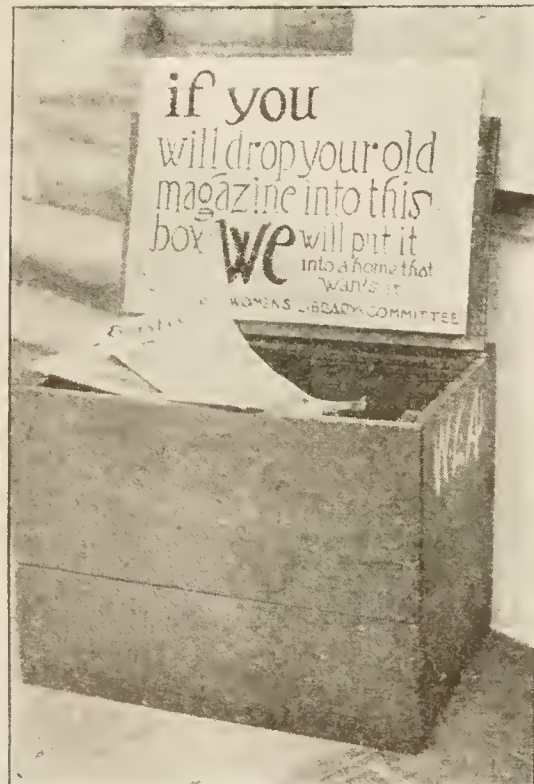 if you
will drop your old
magazine into this
box We will put it
into a home that
wants it
WOMENS LIBRARY COMMITTEE